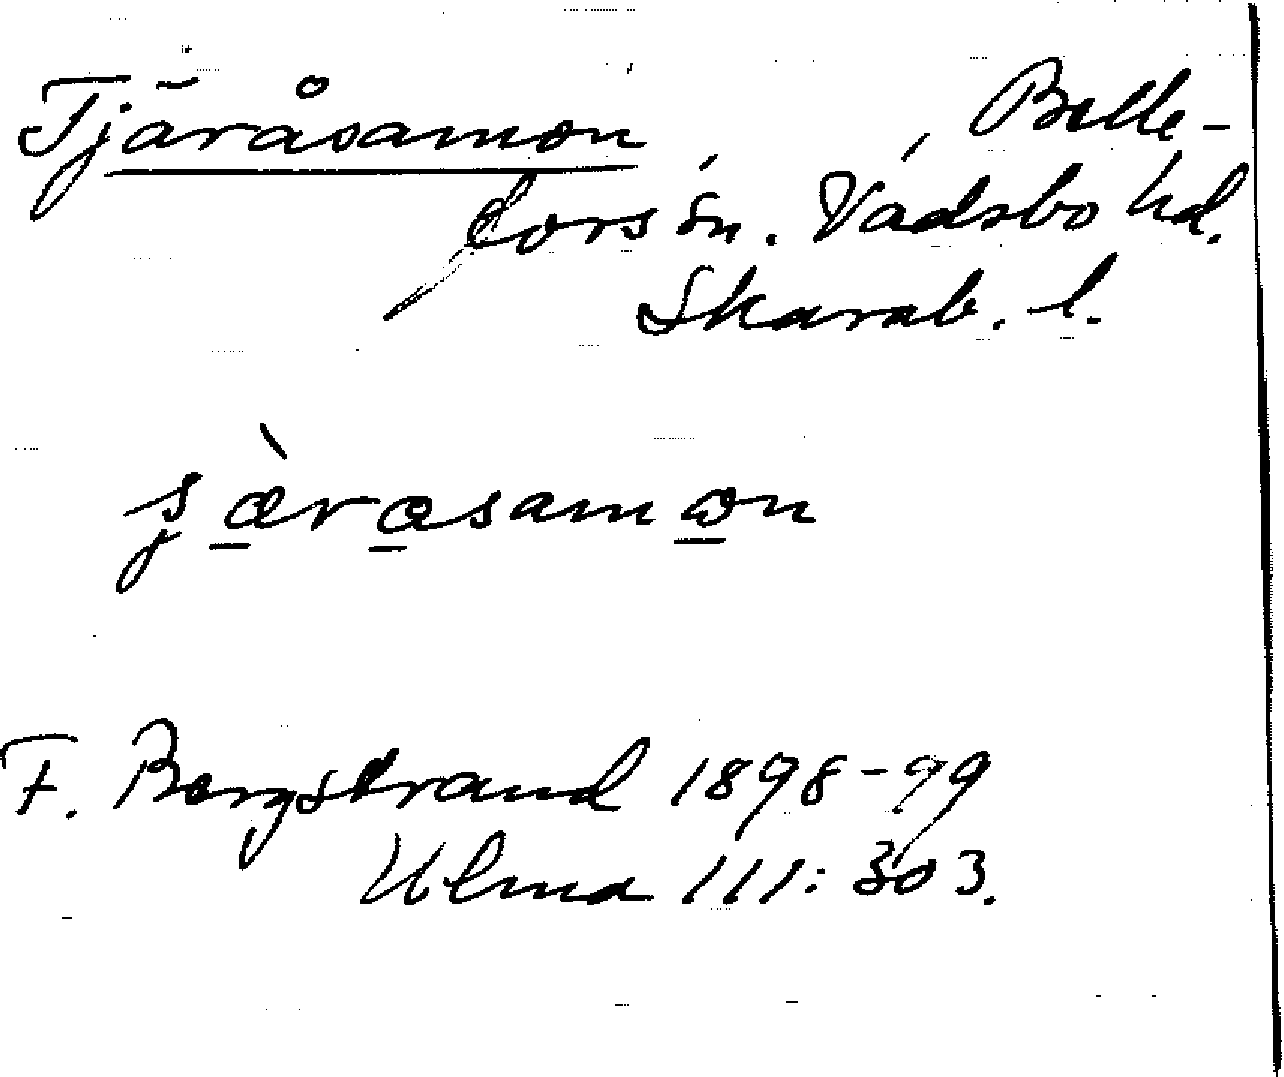 Tjäråsamon, Belle-
fors sn. Vadsbo hd.
Skarab. l.
F. Bergstrand 1898-99
Ulma 111: 303.